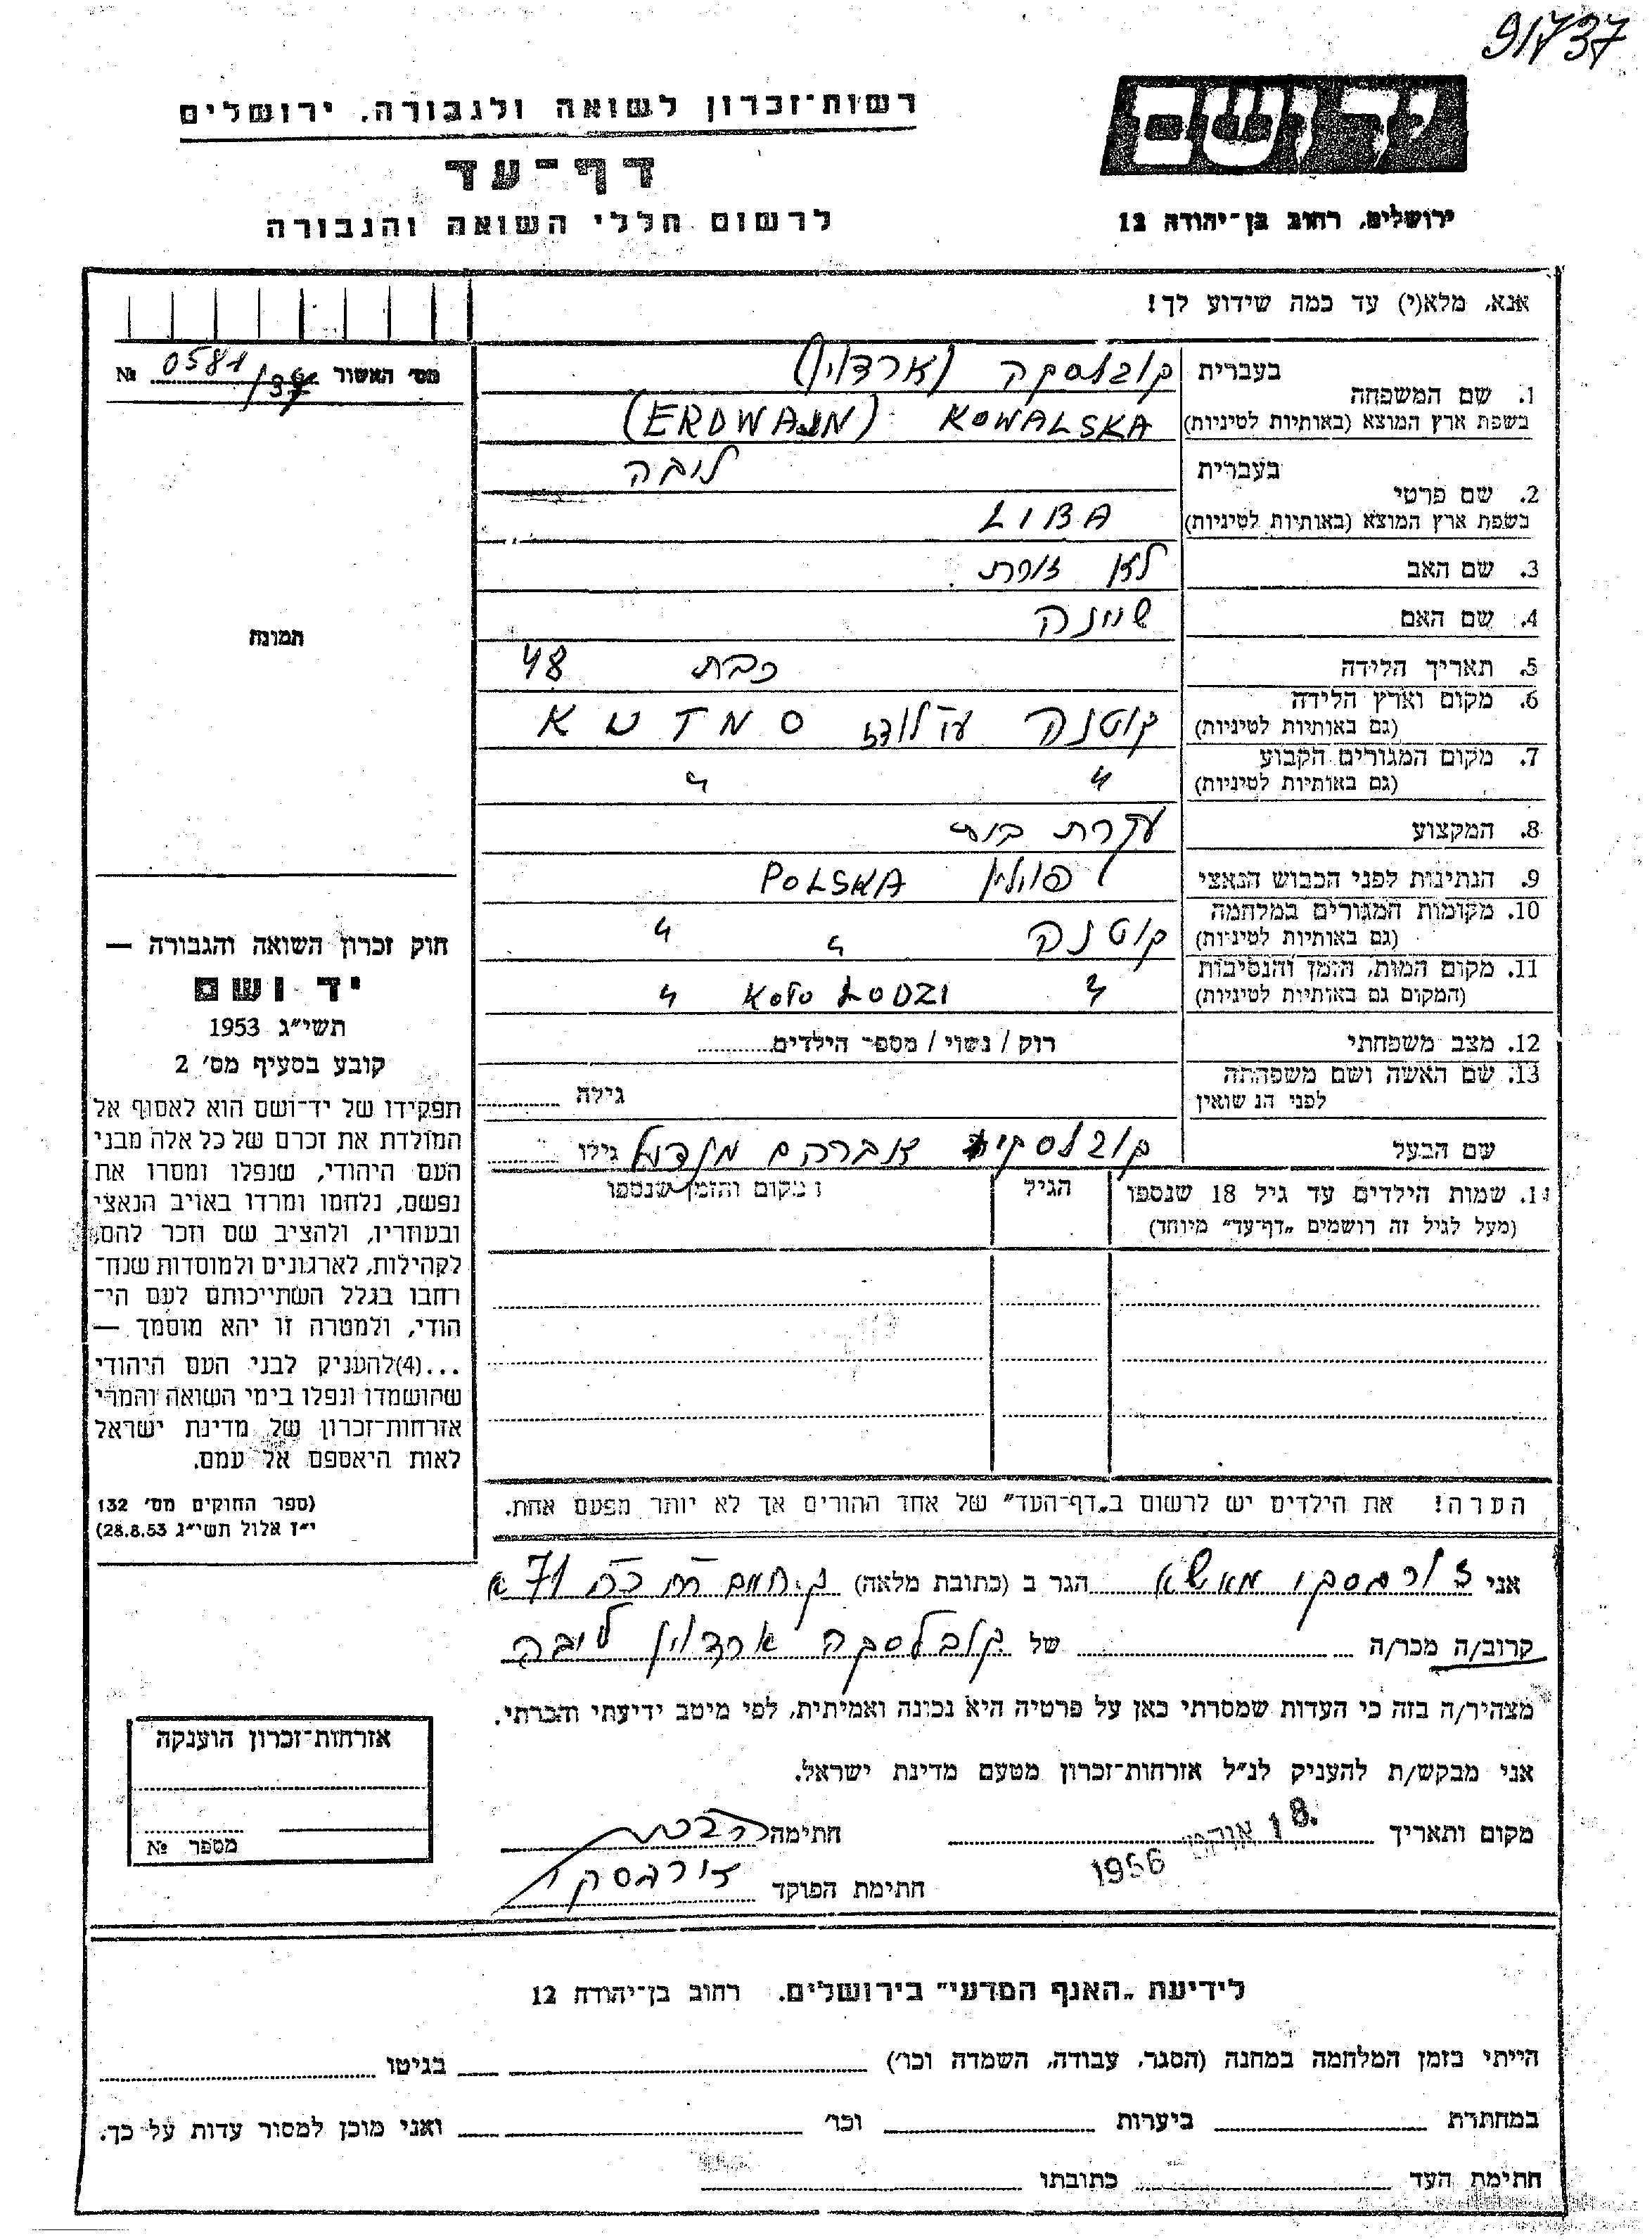 91737
יד ושם
רשות־זכרון לשואה ולגבורה, ירושלים
דף־עד
לרשום חללי השואה והגבורה
ירושלים, רחוב בן־יהודה 12
אנא, מלא(י) עד כמה שידוע לך!
מס׳ האשור № 0581/
1. שם המשפחה
בעברית קובלסקה (ארדוין)
בשפת ארץ המוצא (באותיות לטיניות) KOWALSKA (ERDWAJN)
2. שם פרטי
בעברית ליבה
בשפת ארץ המוצא (באותיות לטיניות) LIBA
3. שם האב לא זוכרת
4. שם האם שיינה
5. תאריך הלידה כבת 48
6. מקום וארץ הלידה
(גם באותיות לטיניות) קוטנה ע״י לודז KUTNO
7. מקום המגורים הקבוע
(גם באותיות לטיניות) " "
8. המקצוע עקרת בית
9. הנתינות לפני הכבוש הנאצי פולין POLSKA
10. מקומות המגורים במלחמה
(גם באותיות לטיניות) קוטנה " "
11. מקום המות, הזמן והנסיבות
(המקום גם באותיות לטיניות) " KOŁO ŁODZI "
12. מצב משפחתי רוק / נשוי / מספר הילדים
13. שם האשה ושם משפחתה
לפני הנישואין גילה
שם הבעל קובלסקי אברהם מנדל גילו
14. שמות הילדים עד גיל 18 שנספו
(מעל לגיל זה רושמים „דף־עד״ מיוחד)
הגיל
מקום והזמן שנספו
הערה! את הילדים יש לרשום ב„דף־העד״ של אחד ההורים אך לא יותר מפעם אחת.
תמונה
חוק זכרון השואה והגבורה —
יד ושם
תשי״ג 1953
קובע בסעיף מס׳ 2
תפקידו של יד־ושם הוא לאסוף אל
המולדת את זכרם של כל אלה מבני
העם היהודי, שנפלו ומסרו את
נפשם, נלחמו ומרדו באויב הנאצי
ובעוזריו, ולהציב שם וזכר להם,
לקהילות, לארגונים ולמוסדות שנח־
רחבו בגלל השתייכותם לעם הי־
הודי, ולמטרה זו יהא מוסמך —
...(4)להעניק לבני העם היהודי
שהושמדו ונפלו בימי השואה והמרי
אזרחות־זכרון של מדינת ישראל
לאות היאספם אל עמם.
(ספר החוקים מס׳ 132
י״ז אלול תשי״ג 28.8.53)
אני הגר ב (כתובת מלאה) ק. 71
קרוב/ה מכר/ה של קובלסקה ארדוין ליבה
מצהיר/ה בזה כי העדות שמסרתי כאן על פרטיה היא נכונה ואמיתית, לפי מיטב ידיעתי והכרתי.
אני מבקש/ת להעניק לנ״ל אזרחות־זכרון מטעם מדינת ישראל.
מקום ותאריך 18. 1956 חתימה
חתימת הפוקד
אזרחות־זכרון הוענקה
מספר №
לידיעת „האגף המדעי״ בירושלים, רחוב בן־יהודה 12
הייתי בזמן המלחמה במחנה (הסגר, עבודה, השמדה וכו׳) בגיטו
במחתרת ביערות וכו׳ ואני מוכן למסור עדות על כך.
חתימת העד כתובתו